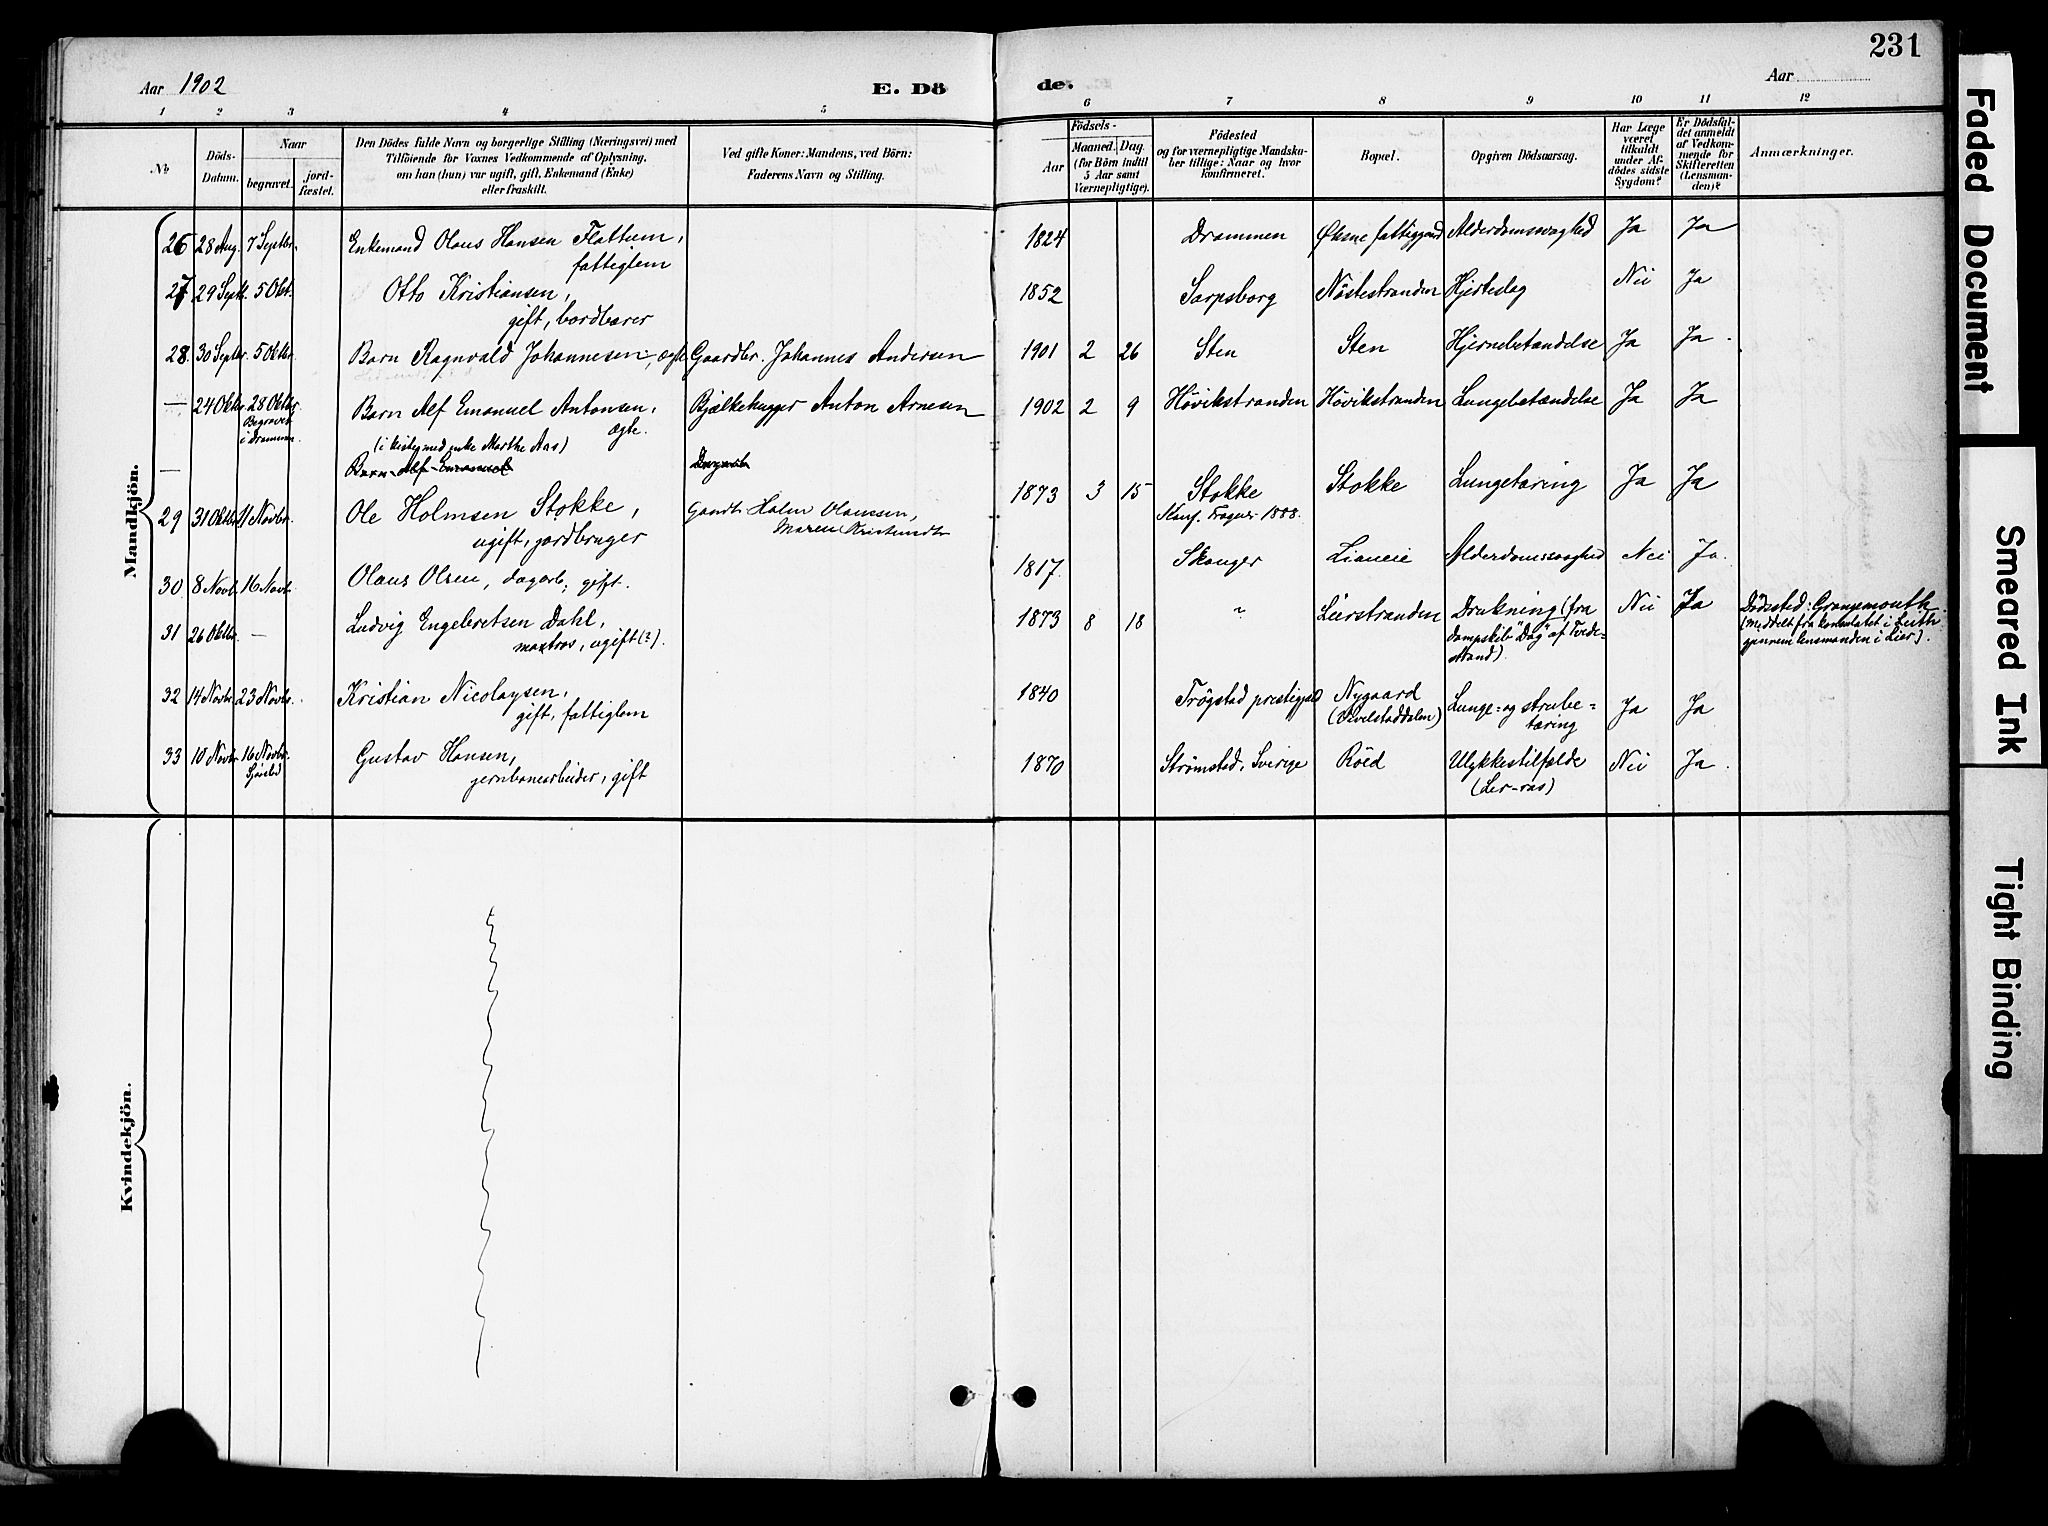 231
Aar 1902
E. Dö
de.
Aar
1 2 3 4 5 6 7 8 9 10 11 12
No
Döds-
Datum.
Naar
begravet.
jord-
fæstet.
Den Dödes fulde Navn og borgerlige Stilling (Næringsvei) med
Tilföiende for Voxnes Vedkommende af Oplysning,
om han (hun) var ugift, gift, Enkemand (Enke)
eller fraskilt.
Ved gifte Koner: Mandens, ved Börn:
Faderens Navn og Stilling.
Födsels-
Aar
Maaned. Dag.
(for Börn indtil
5 Aar samt
Værnepligtige).
Födested
og for værnepligtige Mandska-
ber tillige: Naar og hvor
konfirmeret.
Bopæl.
Opgiven Dödsaarsag.
Har Læge
været
tilkaldt
under Af-
dödes sidste
Sygdom?
Er Dödsfal-
det anmeldt
af Vedkom-
mende for
Skifteretten
(Lensman-
den)?
Anmærkninger.
Mandkjön.
26 28 Aug. 7 Septbr. Enkemand Olaus Hansen Flattum, 1824 Drammen Øksne fattiggaard Alderdomssvaghed Ja Ja
fattiglem
27 29 Septbr. 5 Okt. Otto Kristiansen, 1852 Sarpsborg Nöstestranden Hjerteslag Nei Ja
gift, bordbærer
28. 30 Septbr. 5 Oktbr. Barn Ragnvald Johannesen, ægte Gaardbr. Johannes Andersen 1901 2 26 Sten Sten Hjernebetændelse Ja Ja.
— 24 Oktbr. 28 Oktbr. Barn Alf Emanuel Antonsen, Bjælkehugger Anton Arnesen 1902 2 9 Høvikstranden Høvikstranden Lungebetændelse Ja Ja
Begravet
i Drammen.
ægte.
(i kiste med enke Marthe Aas)
— Barn Alf Emanuel Dagarb
29 31 Oktbr. Novbr. Ole Holmsen Stokke, Gaardbr. Holm Olaussen, 1873 3 15 Stokke Stokke Lungetæring Ja Ja
Maren Kristiansdtr
Konf. Frogner 1888.
ugift, jordbruger
30 8 Novb. 16 Novbr. Olaus Olsen, dagarb., gift. 1817. Skauger Lianeie Alderdomssvaghed Nei Ja.
31 26 Oktbr. — Ludvig Engebretsen Dahl, 1873 8 18 " Lierstranden Drukning (fra Nei Ja Dödssted: Grangemouth.
matros, ugift (?).
dampskib "Dag" af Tvede-
strand).
(Meddelt fra konsulatet i Leith
gjennem lensmanden i Lier).
32 14 Novbr. 23 Novbr. Kristian Nicolaysen, 1840 Trögstad prestigjæld Nygaard Lunge- og strube- Ja Ja
gift, fattiglem
(Kvelstaddalen)
tæring
33 10 Novbr. 16 Novbr. Gustav Hansen, 1870 Strömsted, Sverige Röed Ulykkestilfælde Nei Ja.
jernbanearbeider, gift
(Ler-ras)
Kvindekjön.
Faded Document
Smeared Ink
Tight Binding